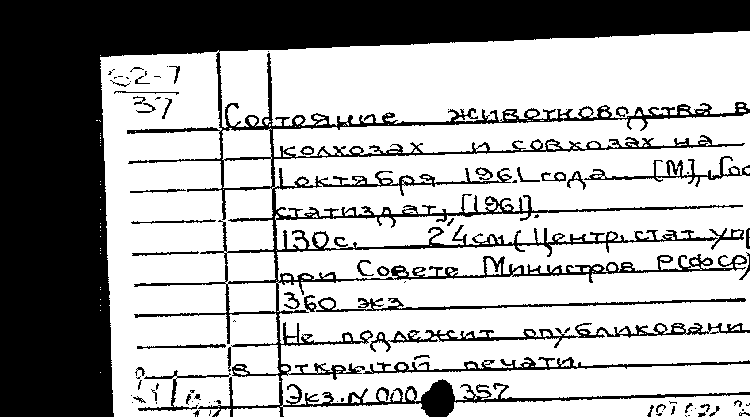 62-7
37
Состояние животноводства в
колхозах и совхозах на
1 октября 1961 года. [М], Гос
статиздат, [1961].
130 с. 24 см. (Центр. стат. упр
при Совете Министров РСФСР)
360 экз
Не подлежит опубликовани
в открытой печати.
Экз. N 000 357